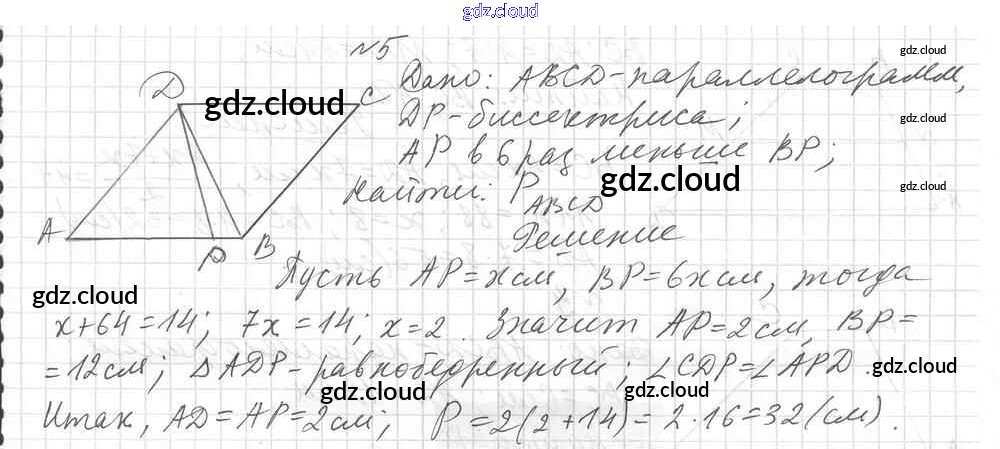 gdz.cloud
№5
Дано: ABCD-параллелограмм,
gdz.cloud
D
gdz.cloud
C
DP-биссектриса;
gdz.cloud
AP в 6 раз меньше BP;
gdz.cloud
Найти: P ABCD
gdz.cloud
gdz.cloud
A
P
B
Решение
Пусть AP=x см, BP=6x см, тогда
gdz.cloud
x+64=14; 7x=14; x=2. Значит AP=2 см, BP=
gdz.cloud
=12 см; △ADP-равнобедренный; ∠CDP=∠APD.
gdz.cloud
gdz.cloud
Итак, AD=AP=2 см; P=2(2+14)=2·16=32(см).
gdz.cloud
gdz.cloud